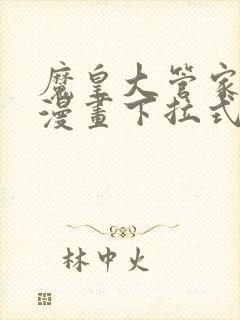 魔皇大管家
漫畫下拉式
林中火